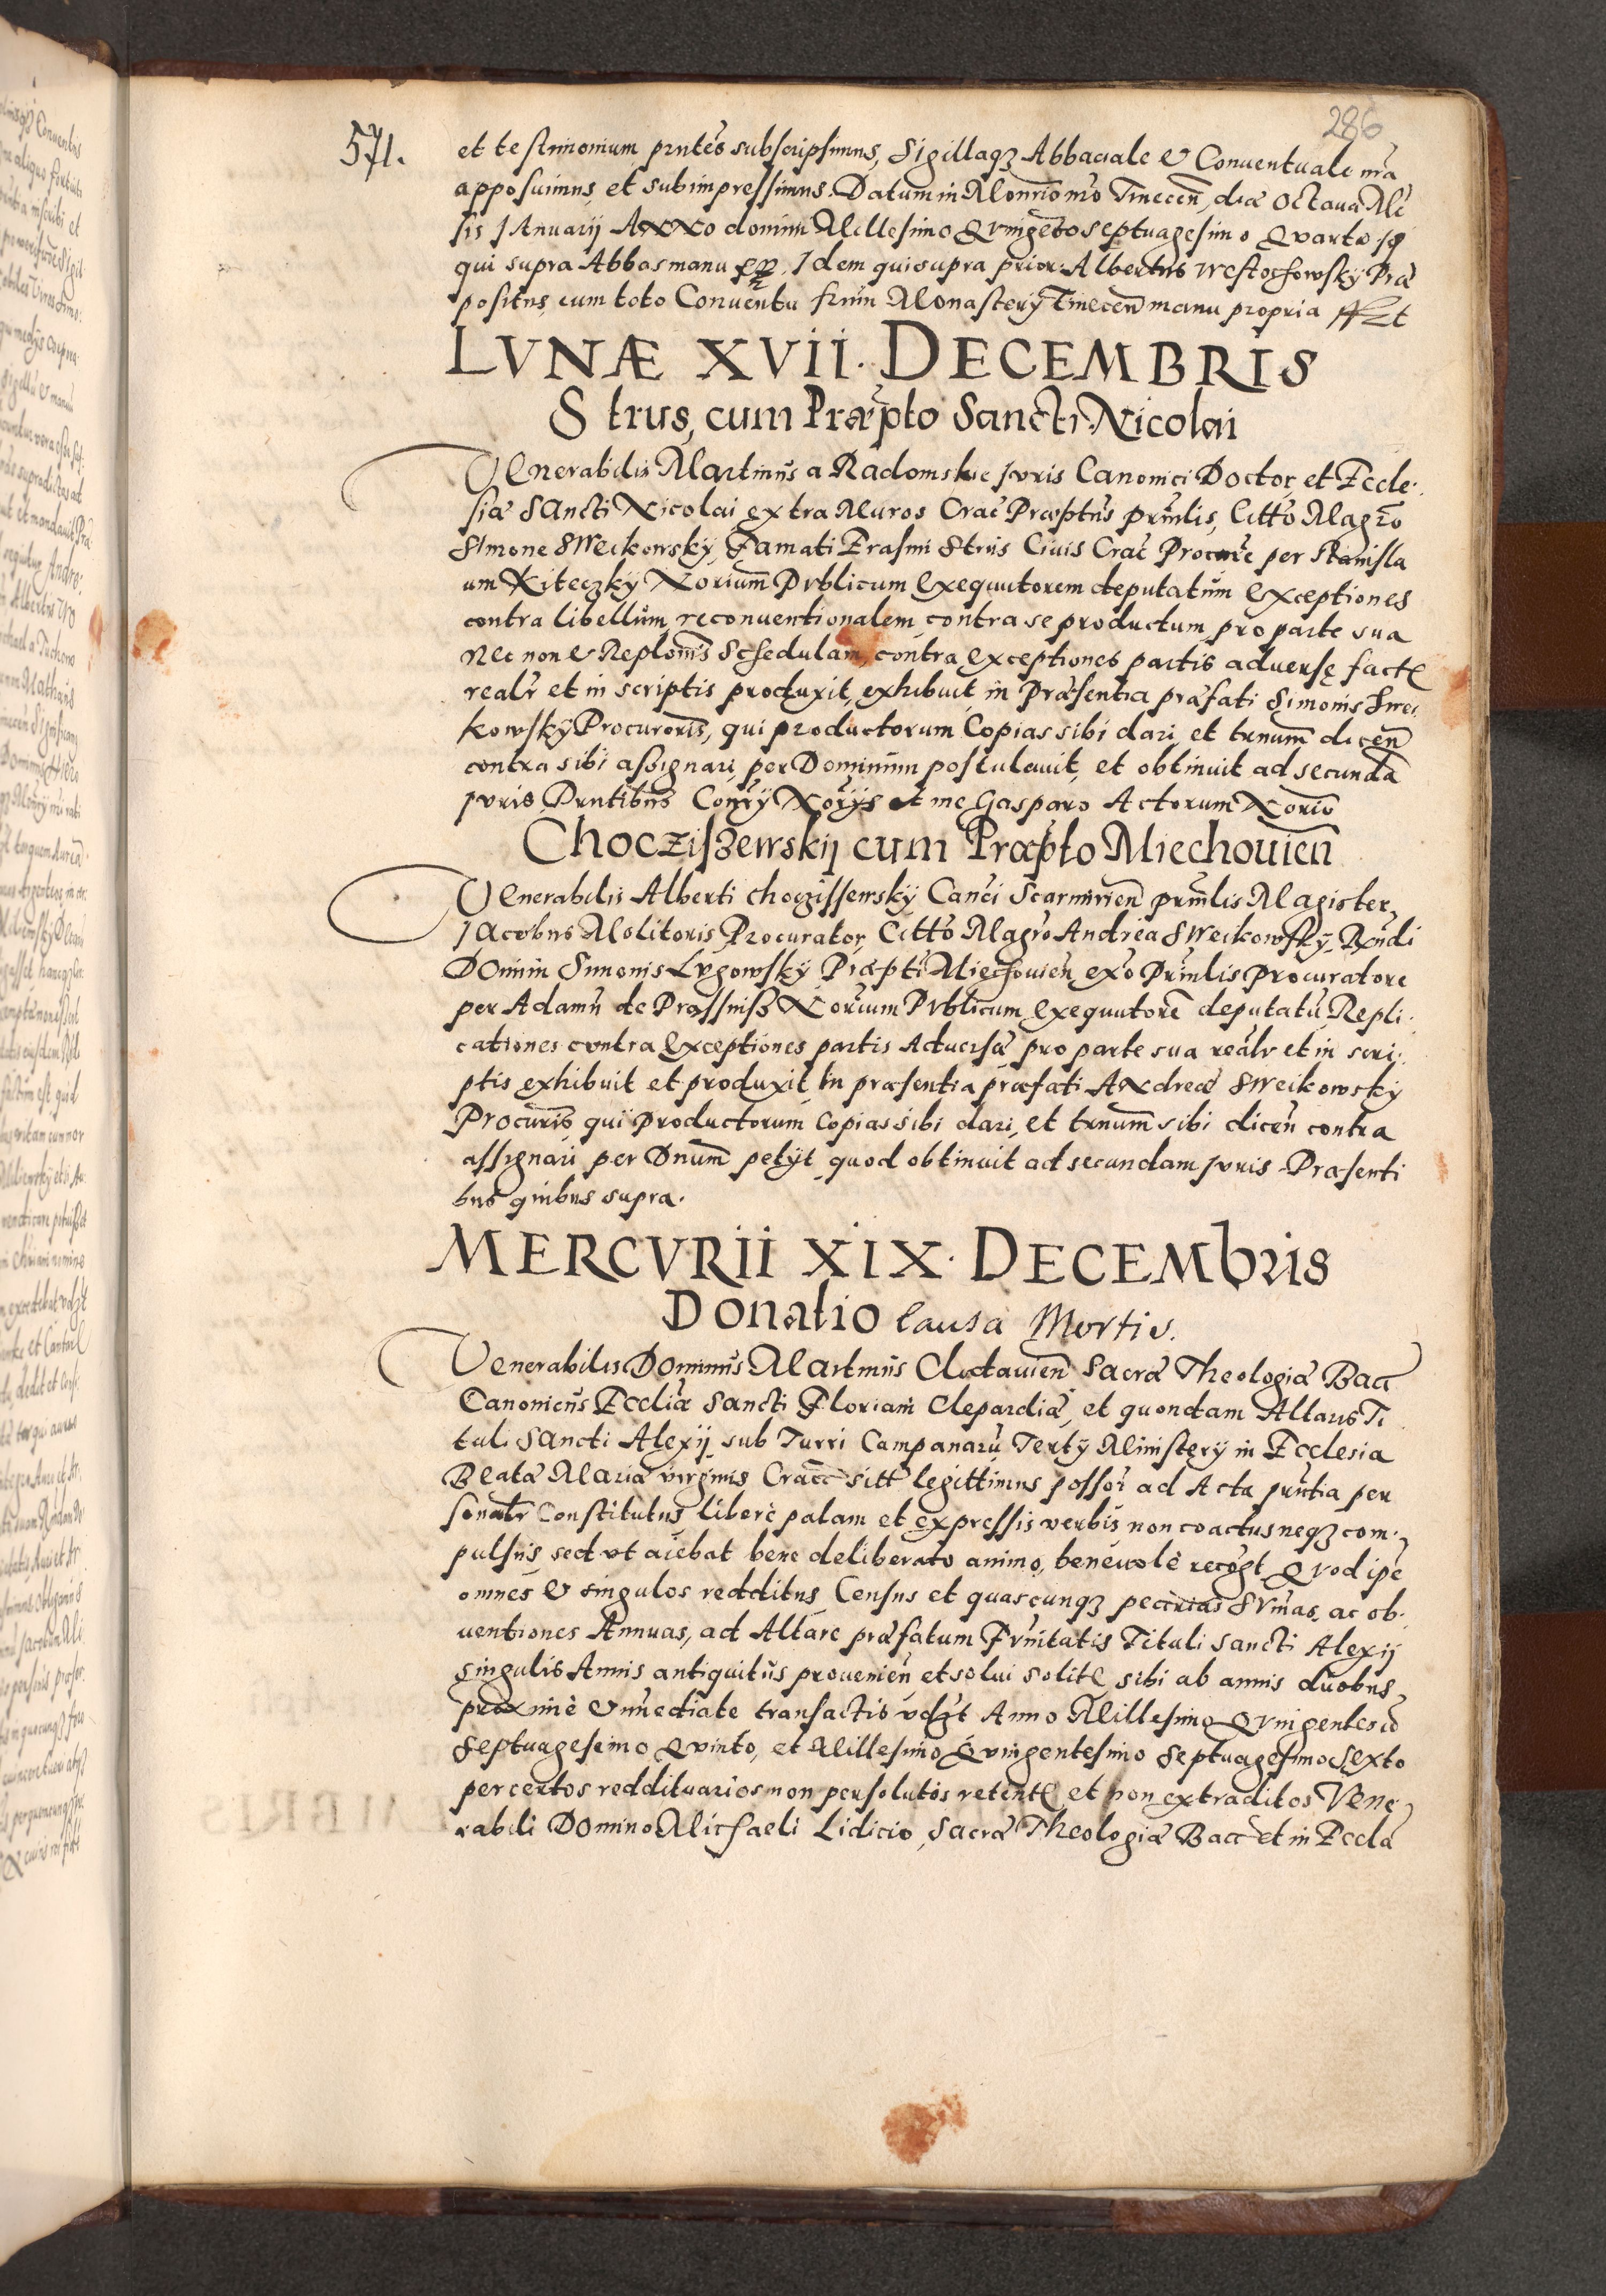 286
571.
et testimonium prntes subscripsimus, Sigillaqz Abbaciale et Conuentuale nra
apposuimus, et subimpressimus. Datum in Monrio nro Tinecen, die Octaua Me
sis January Anno domini Millesimo Quingeto septuagesimo Quarto
qui supra Abbas manu pp. Idem qui supra prior Albertus Westochowsky Præ
positus, cum toto Conuentu frum Monastery Tinecen manu propria Et
LVNÆ XVII. DECEMBRIS
Strus, cum Præpto Sancti Nicolai
Venerabilis Martinus a Radomskie Juris Canonici Doctor, et Eccle
siæ SAncti Nicolai extra Muros Crac Præptus prinlis, Citto Magro
Simone SWeikowsky, Famati Erasmi Strus Ciuis Crac Procure per Stanisla
um Kiteczky Norium Publicum exequutorem deputatum exceptiones
contra libellum reconuentionalem contra se productum pro parte sua
Nec non et Replonis Schedulam contra exceptiones partis aduersę facte
realr et in scriptis produxit, exhibuit, in Præsentia præfati Simonis Swei
kowsky Procuroris, qui productorum Copias sibi dari, et trnum dicen
contra sibi assignari, per Dominum postulauit, et obtinuit ad secunda
Juris Prntibus Conry Norys et me Gasparo Actorum Norio
Chocziszewskij cum Præpto Miechouien
Venerabilis Alberti Choczissewsky Canci Scarmirien prinlis Magister
Jacobus Molitoris Procurator, Citto Magro Andrea SWeikowsky, Rndi
Domini Simonis Lugowsky Præpti Miechouien exo Prinlis Procuratore
per Adamu de Prassnisz Norium Publicum exequutore deputatu, Repli
cationes contra exceptiones partis Aduersæ pro parte sua realr et in scri
ptis exhibuit et produxit, In præsentia præfati Andreæ SWeikowsky
Procuris qui Productorum copias sibi dari, et trnum sibi dicen contra
assignari per Dnum petyt, quod obtinuit ad secundam Juris. Præsenti
bus quibus supra.
MERCVRII XIX. DECEMbris
Donatio Causa Mortis.
Venerabilis Dominus Martinus Clodauien Sacræ Theologiæ Bacc
Canonicus Eccliæ Sancti Floriani Clepardiæ, et quondam Altaris Ti
tuli Sancti Alexij sub Turri Campanaru Terty Ministery in Ecclesia
Beatæ Mariæ virginis Cracc sitt legittimus possor ad Acta prntia per
sonalr Constitutus libere palam et expressis verbis non coactus neqz com
pulsus, sed vt aiebat bene deliberato animo, beneuole recogt, Quod ipe
omnes et singulos redditus Census et quascunqz pecrias Sumas, ac ob
uentiones Annuas, ad Altare præfatum Tituli Sancti Alexij
singulis Annis antiquitus prouenien et solui solite sibi ab annis duobus
proxime et immediate transactis vdzt Anno Millesimo Quingentesio
Septuagesimo Quinto, et Millesimo Quingentesimo Septuagesimo Sexto
per certos reddituarios non persolutos retente et non extraditos Vene
rabili Domino Michaeli Lidicio, Sacræ Theologiæ Bacc et in Eccla